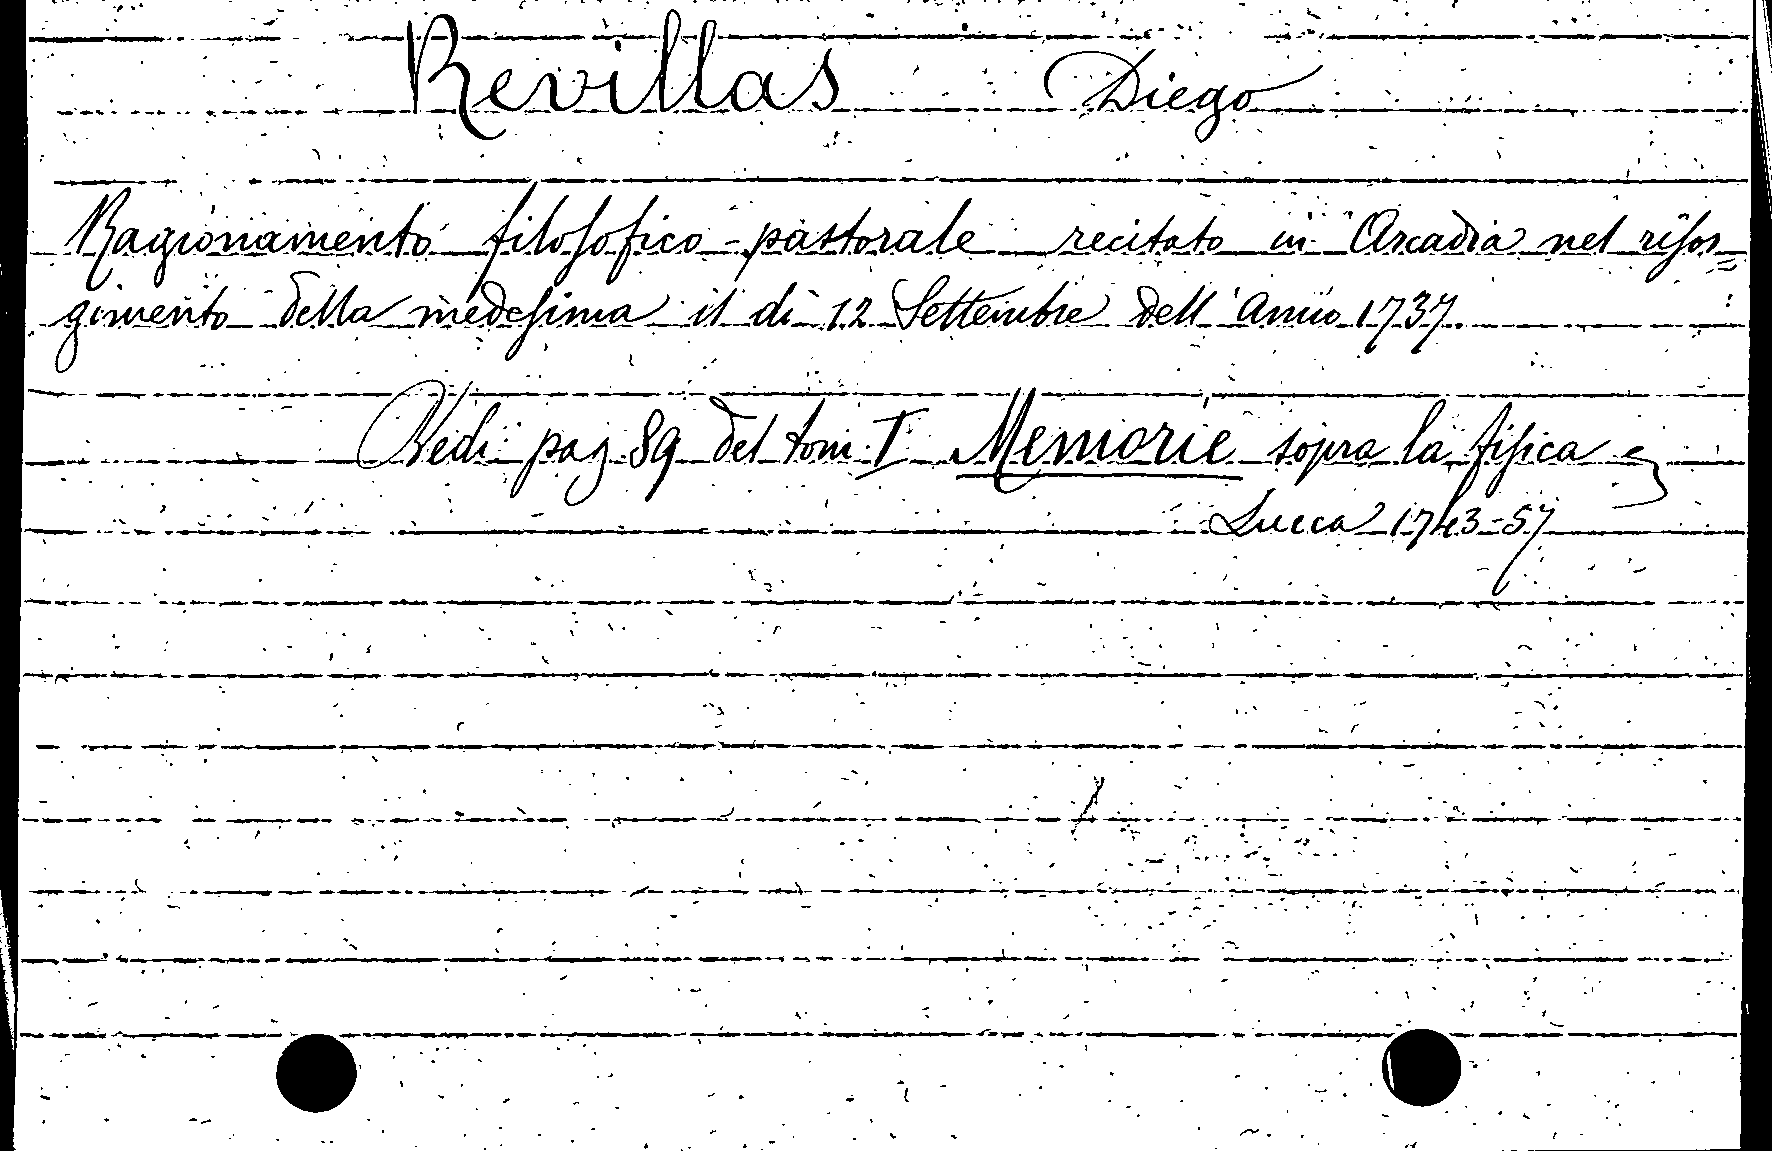 Revillas Diego
Ragionamento filosofico-pastorale recitato in Arcadia nel risor=
gimento della medesima il di 12 Settembre dell' anno 1737.
Vedi pag 89 del tom. I Memorie sopra la fisica
Lucca 1743-57